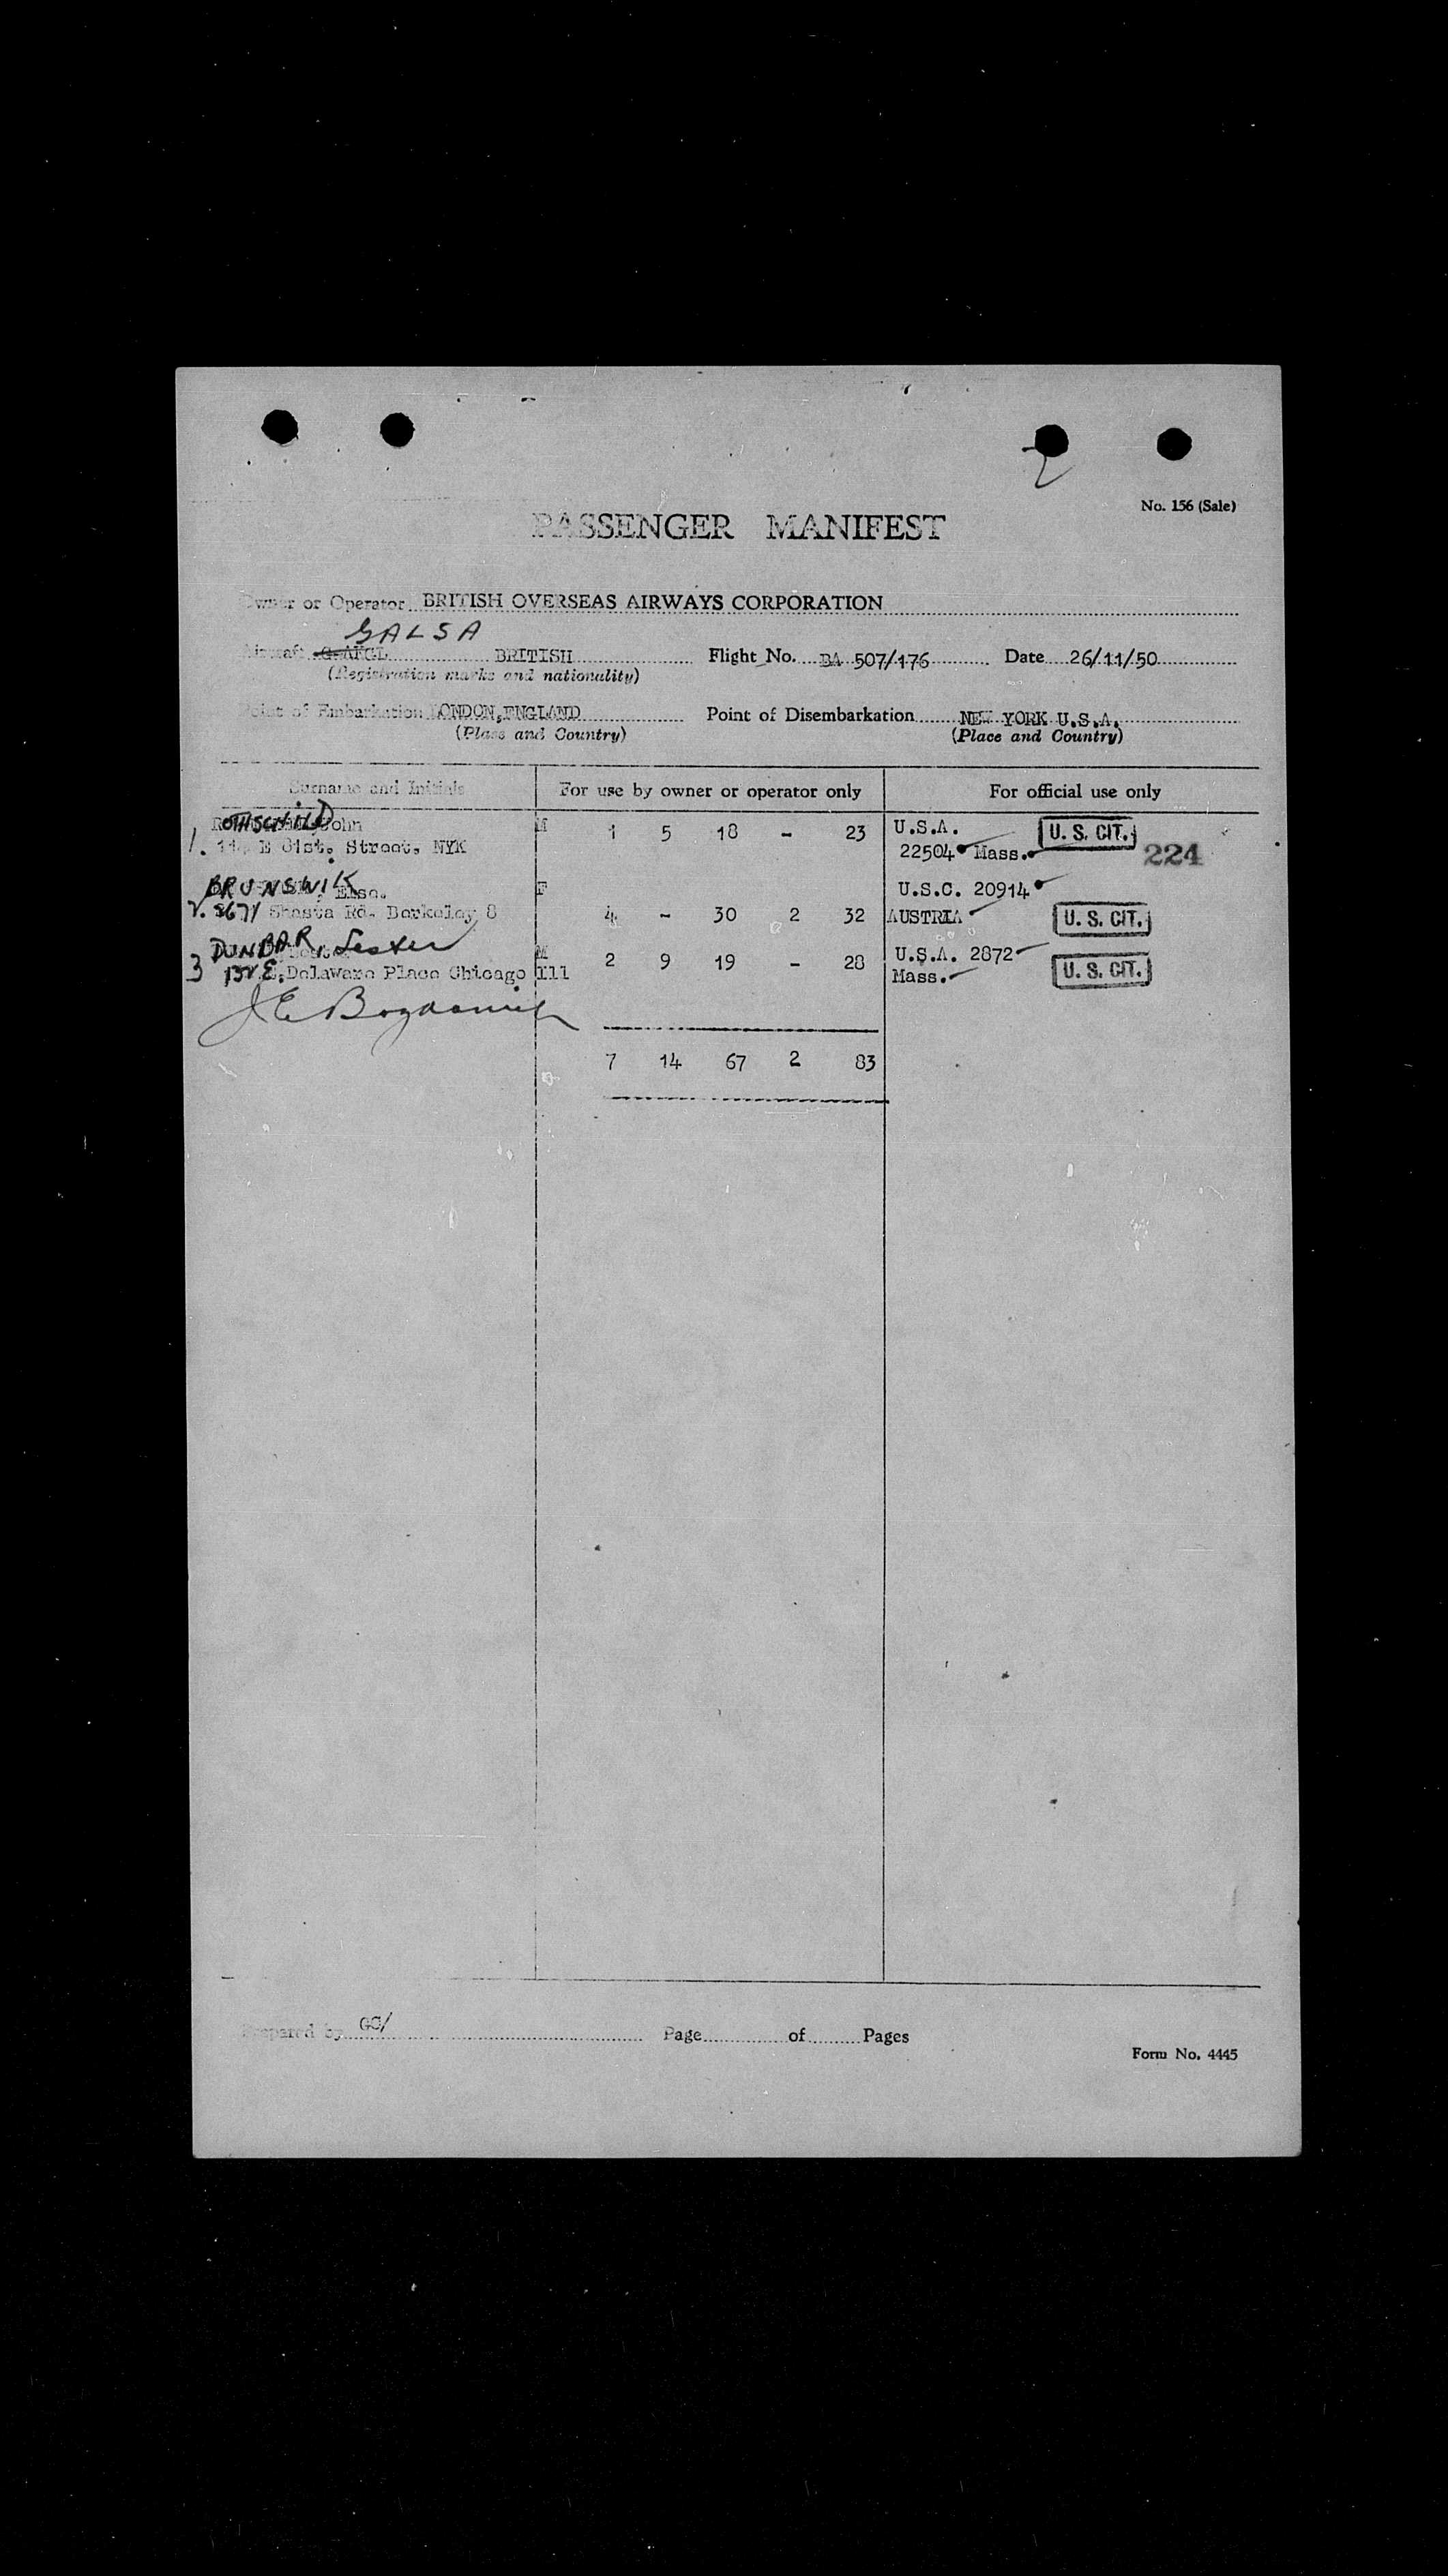 No. 156 (Sale)
PASSENGER MANIFEST
Owner or Operator BRITISH OVERSEAS AIRWAYS CORPORATION
GALSA
Aircraft BRITISH Flight No. BA 507/176 Date 26/11/50
(Registration marks and nationality)
Point of Embarkation LONDON, ENGLAND Point of Disembarkation NEW YORK U.S.A.
(Place and Country) (Place and Country)
Surname and Initials For use by owner or operator only For official use only
1. ROTHSCHILD John M 1 5 18 - 23 U.S.A. U. S. CIT.
E 61st. Street. NYK 22504 Mass. 224
BRUNSWIK, Else. F U.S.C. 20914
2. Shasta Rd. Berkeley 8 4 - 30 2 32 AUSTRIA U. S. CIT.
3 DUNBAR, Lester M 2 9 19 - 28 U.S.A. 2872
132 E. Delaware Place Chicago Ill Mass. U. S. CIT.
7 14 67 2 83
Prepared by GC/ Page of Pages
Form No. 4445